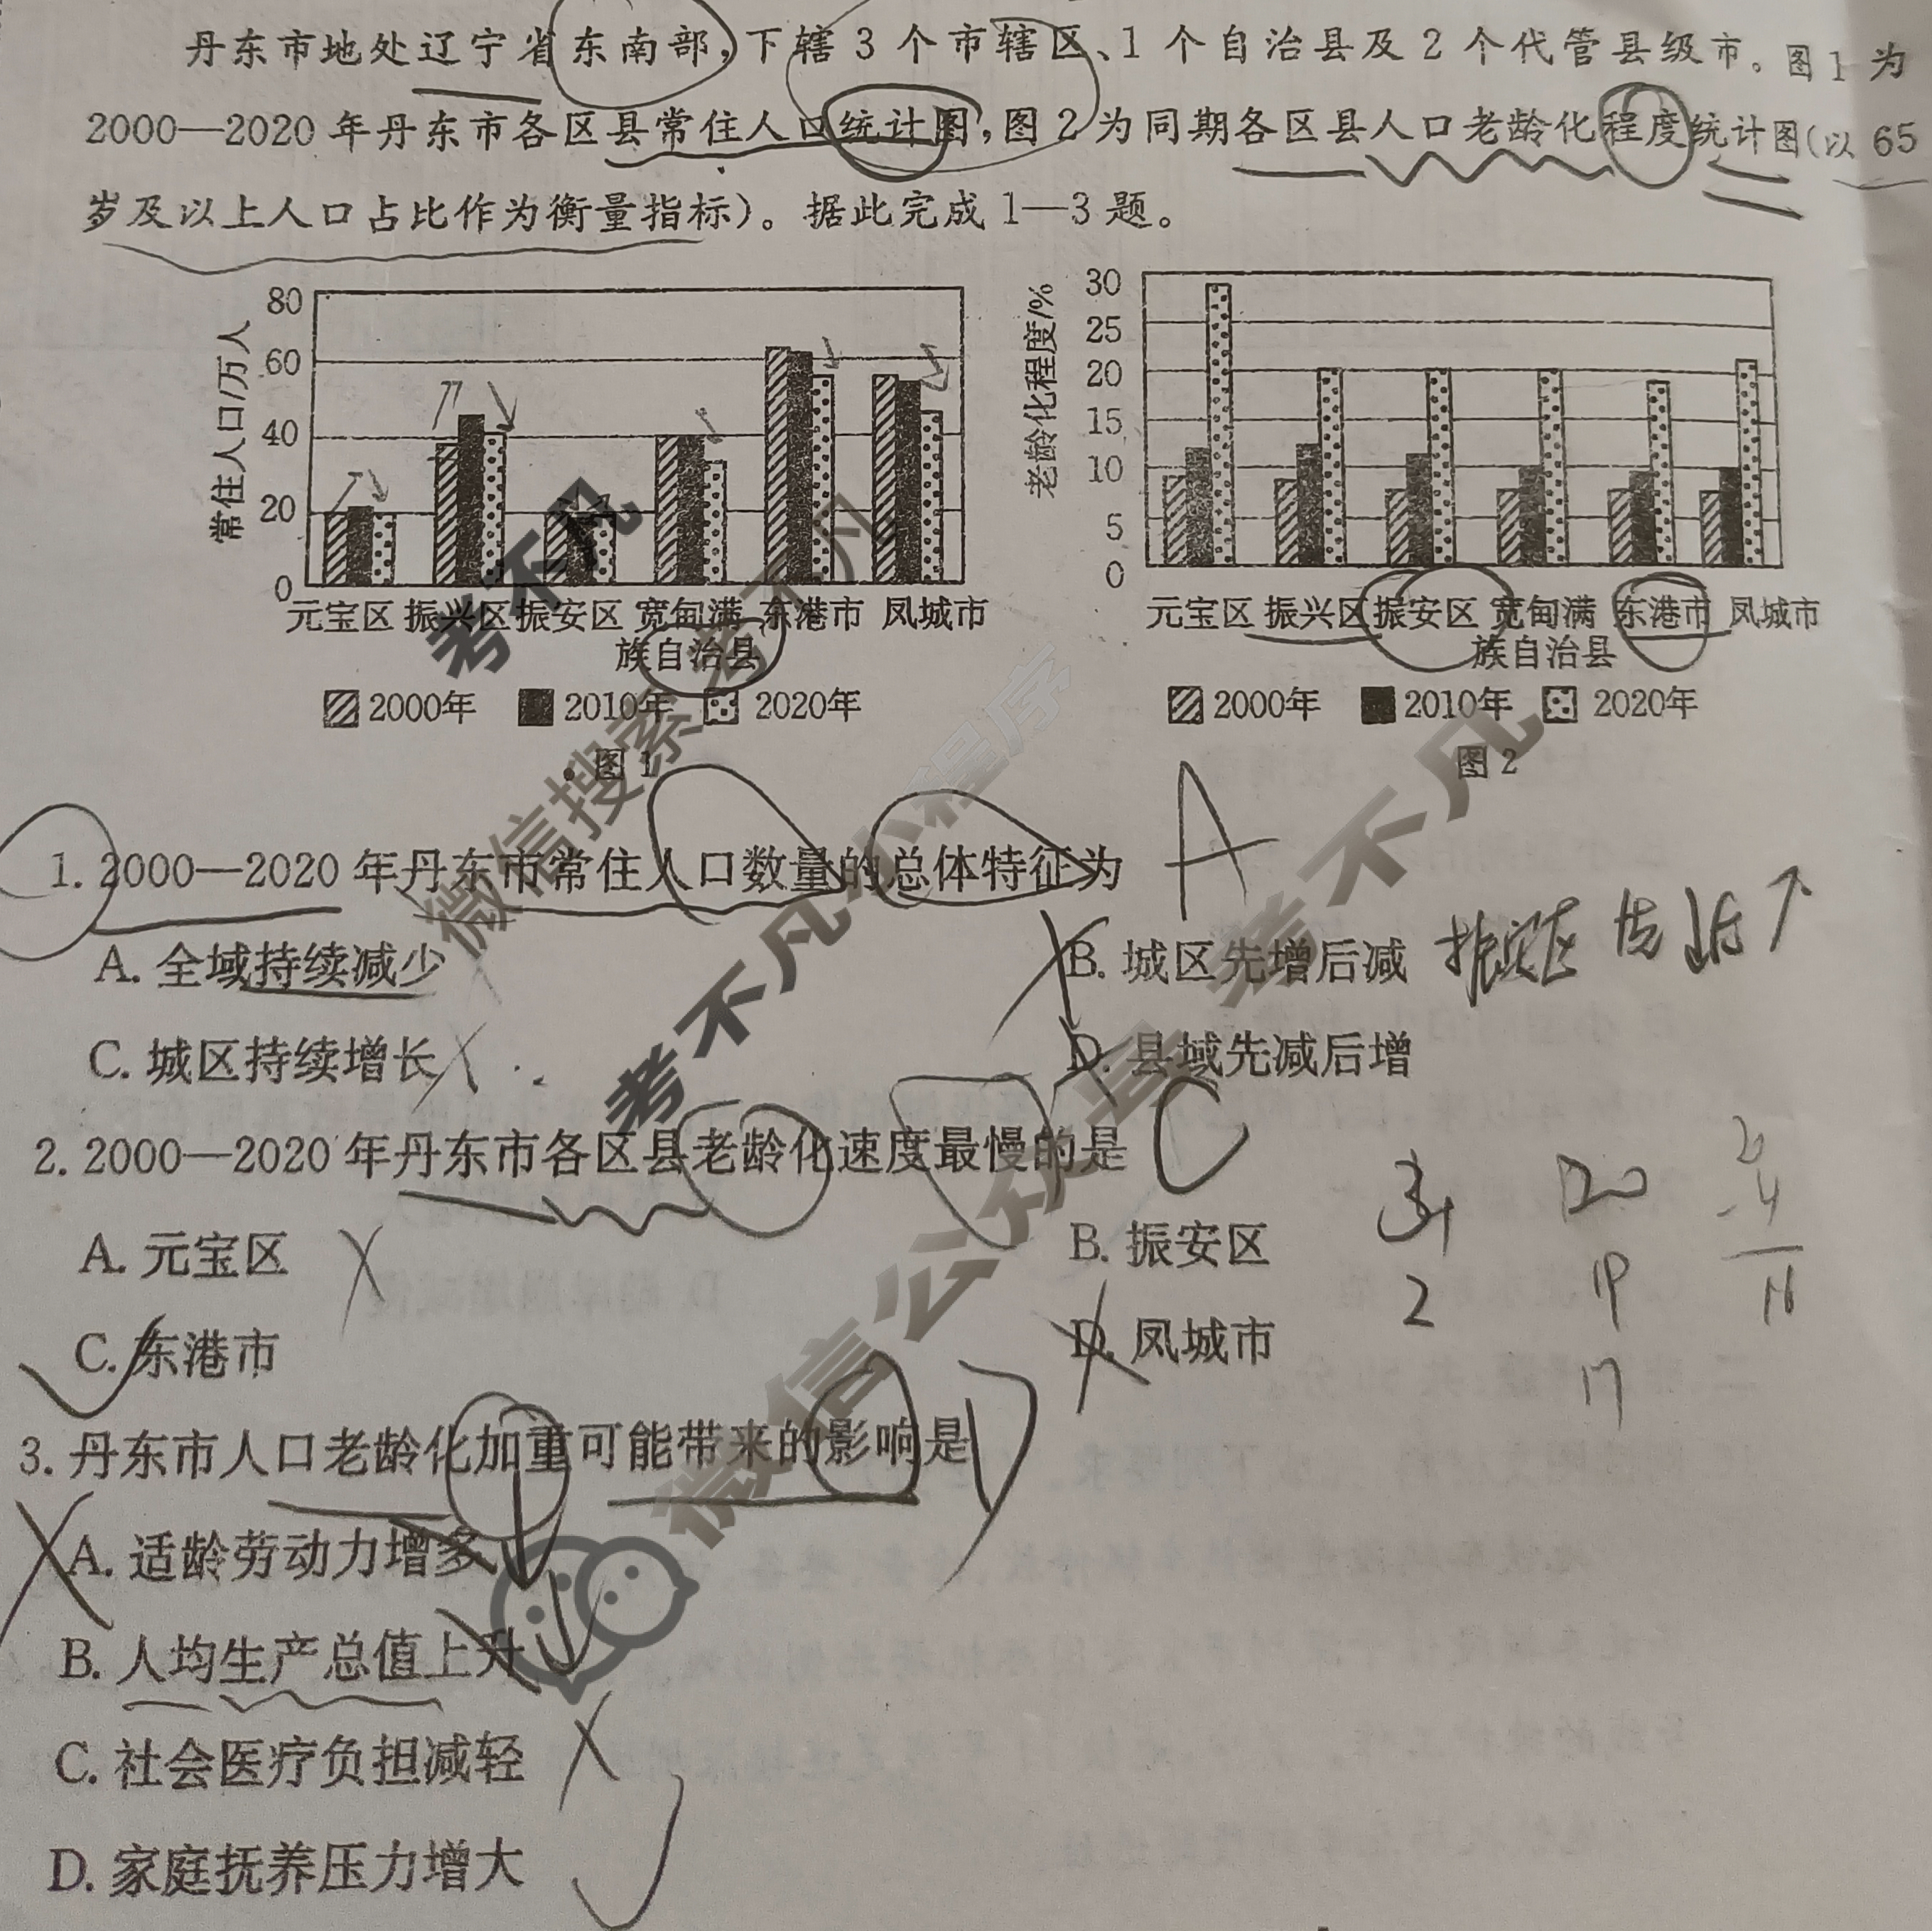 丹东市地处辽宁省东南部,下辖3个市辖区、1个自治县及2个代管县级市。图1为
2000—2020年丹东市各区县常住人口统计图,图2为同期各区县人口老龄化程度统计图(以65
岁及以上人口占比作为衡量指标)。据此完成1—3题。
常住人口/万人
80
60
40
20
0
元宝区 振兴区 振安区 宽甸满 东港市 凤城市
族自治县
2000年 2010年 2020年
图1
老龄化程度/%
30
25
20
15
10
5
0
元宝区 振兴区 振安区 宽甸满 东港市 凤城市
族自治县
2000年 2010年 2020年
图2
1. 2000—2020年丹东市常住人口数量的总体特征为 A
A. 全域持续减少
B. 城区先增后减 振安区 先↓后↑
C. 城区持续增长
D. 县域先减后增
2. 2000—2020年丹东市各区县老龄化速度最慢的是 C
A. 元宝区
B. 振安区
C. 东港市
D. 凤城市
20
19
17
2
3. 丹东市人口老龄化加重可能带来的影响是 D
A. 适龄劳动力增多
B. 人均生产总值上升
C. 社会医疗负担减轻
D. 家庭抚养压力增大
考不凡
微信搜索 考不凡
考不凡 小程序
微信公众号 考不凡